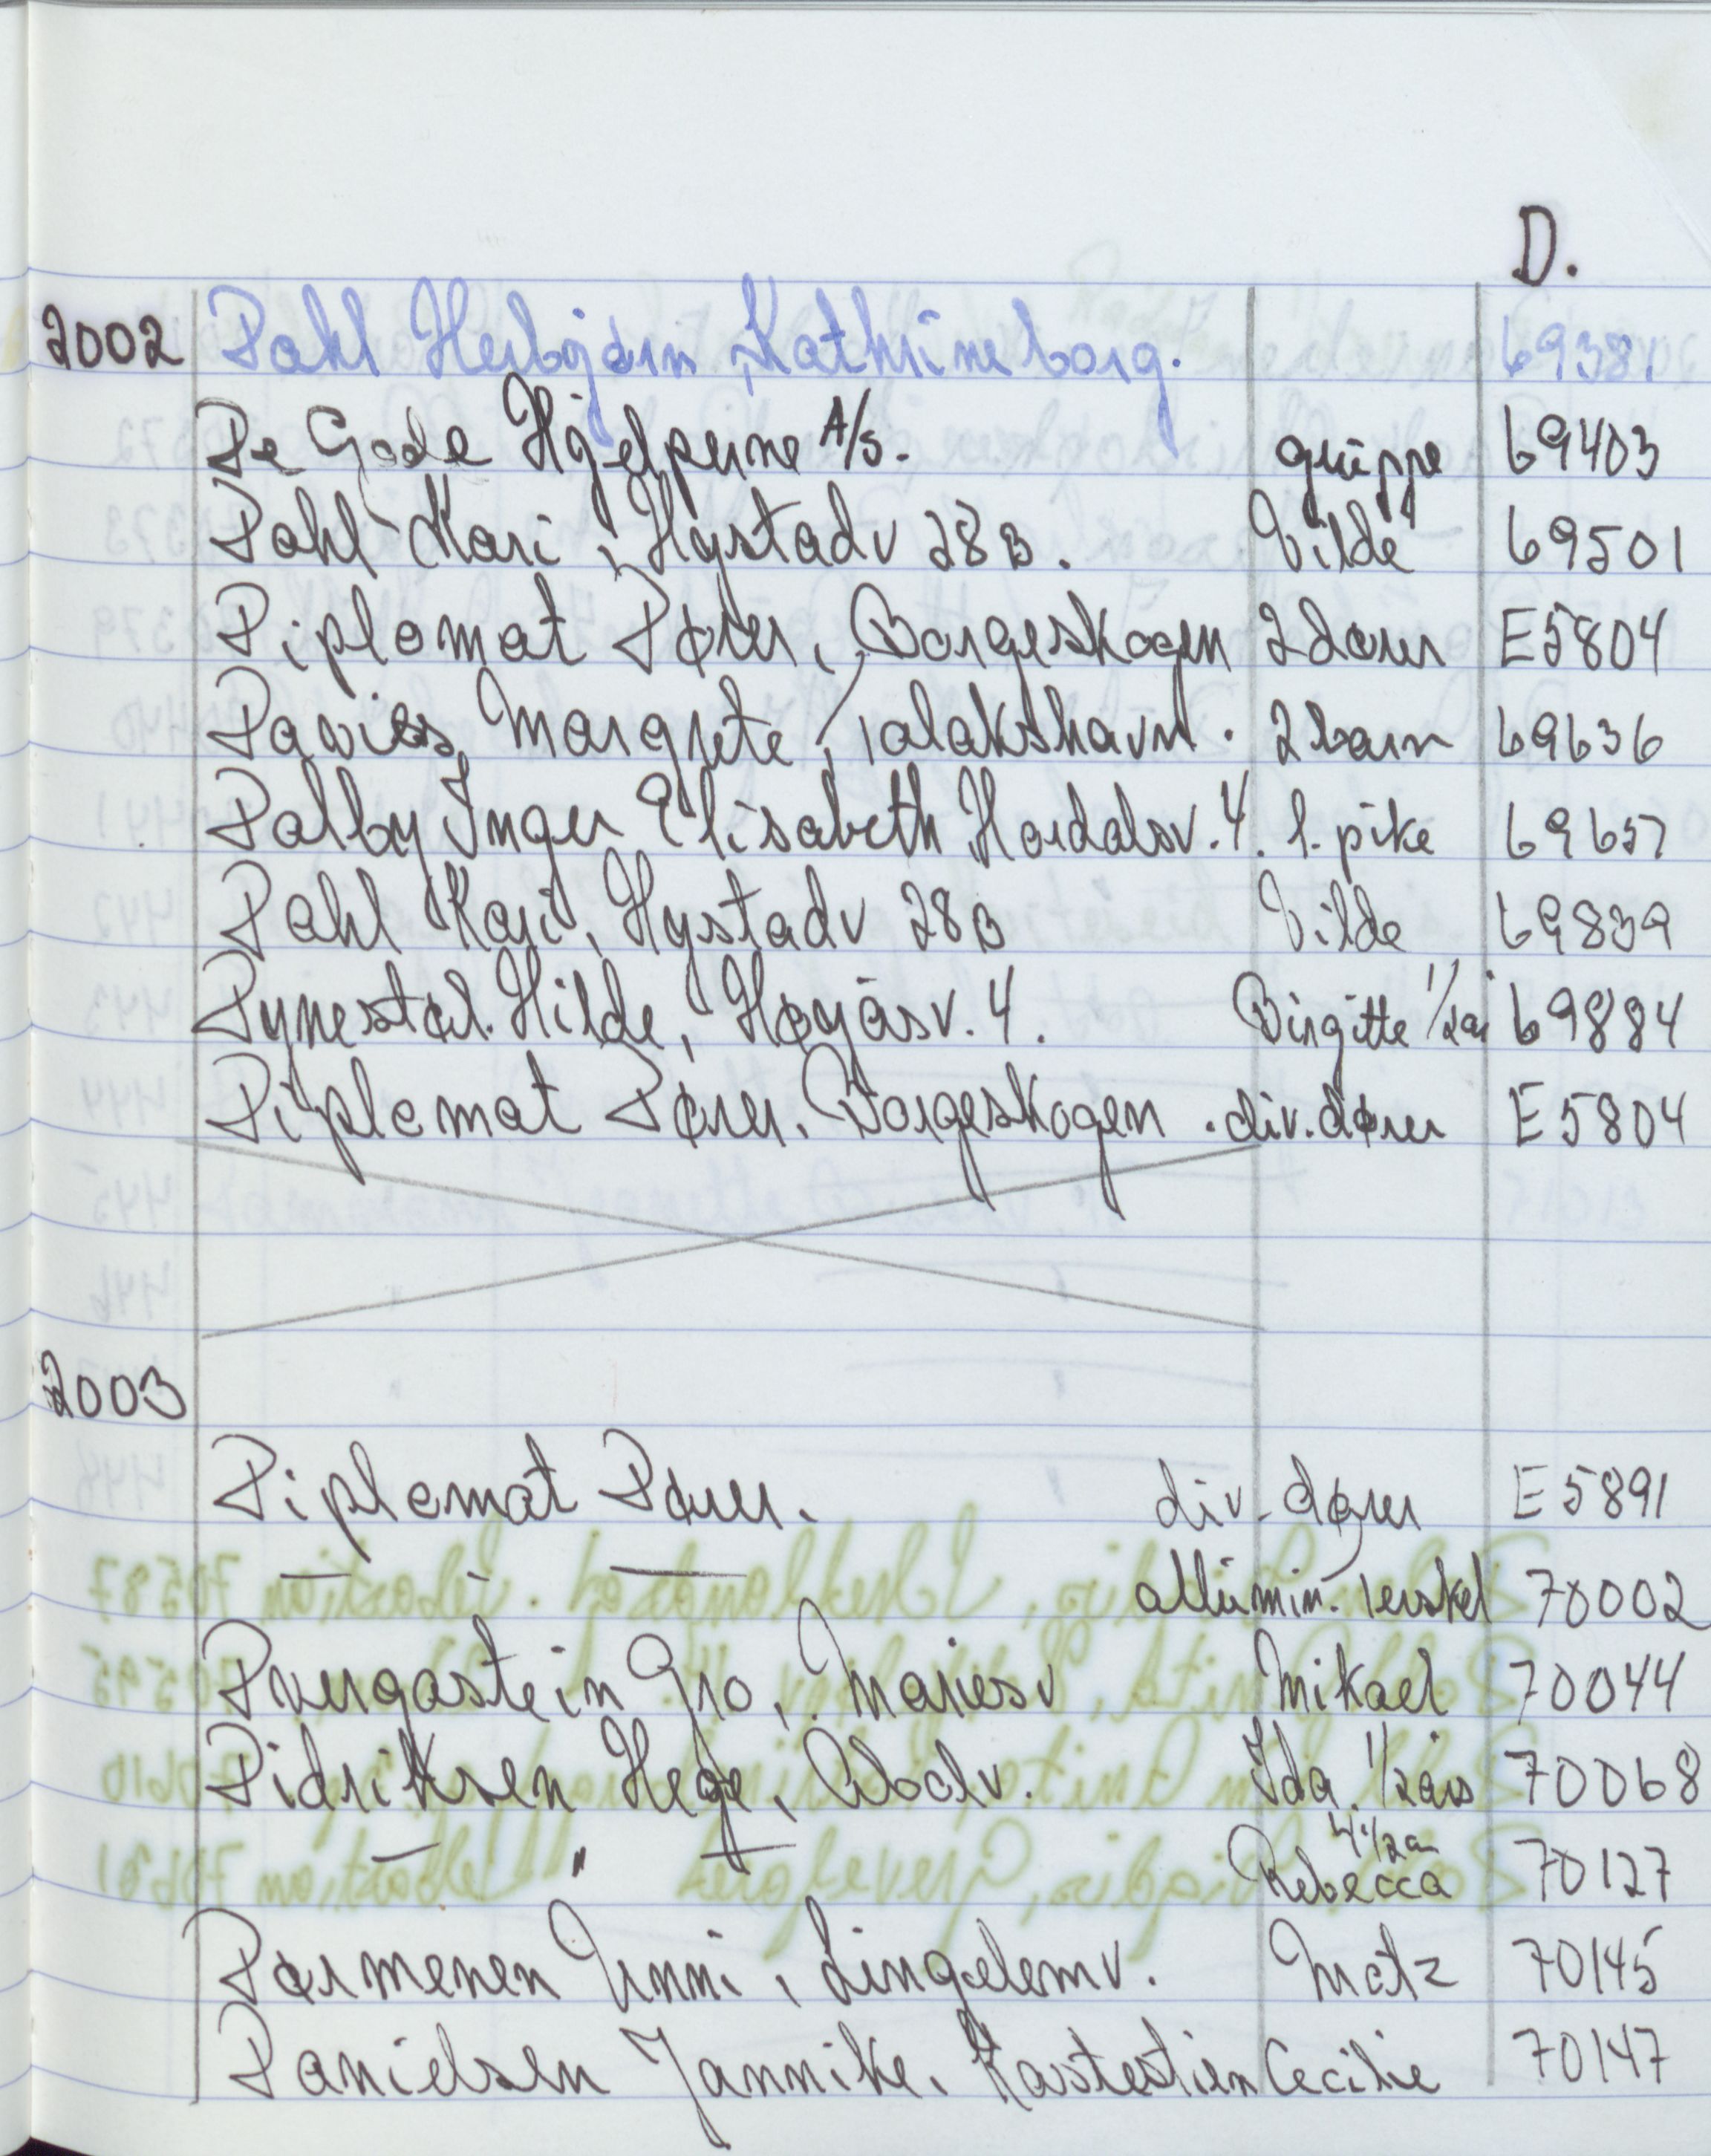 D.
2002 Dahl Herbjørn, Kathrineborg. 69381
De Gode Hjelperne A/S. gruppe 69403
Dahl Kari, Hystadv 28B. Vilde 69501
Diplomat Dører, Borgeskogen 2 dører E5804
Davies, Margrete, 2 barn 69636
Dalby Inger Elisabeth Hordalsv. 4. 1. pike 69657
Dahl Kari, Hystadv 28B Vilde 69839
Dynestøl Hilde, Høyåsv. 4. Birgitte 1/2 år 69884
Diplomat Dører. Borgeskogen. div. dører E5804
2003
Diplomat Dører. div. dører E5891
— - — 70002
Dvergastein Gro, Mariesv Mikael 70044
Didriksen Hege, Ida 1/2 års 70068
— " — Rebecca 4 1/2 år 70127
Dørmenen Unni, Lingelemv. Matz 70145
Danielsen Jannike. Kastestien Cecilie 70147